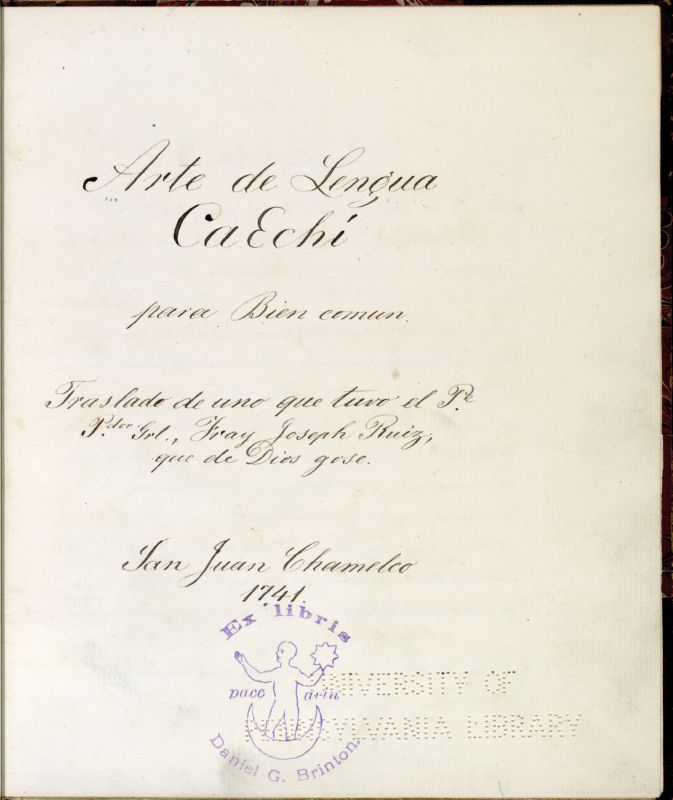 Arte de Lengua
CaEchí
para Bien comun.
Traslado de uno que tuvo el P.e
P.dor Grl., Fray Joseph Ruiz,
que de Dios gose.
San Juan Chamelco
1741.
Ex libris
pacc
Daniel G. Brinton.
UNIVERSITY OF
PENNSYLVANIA LIBRARY